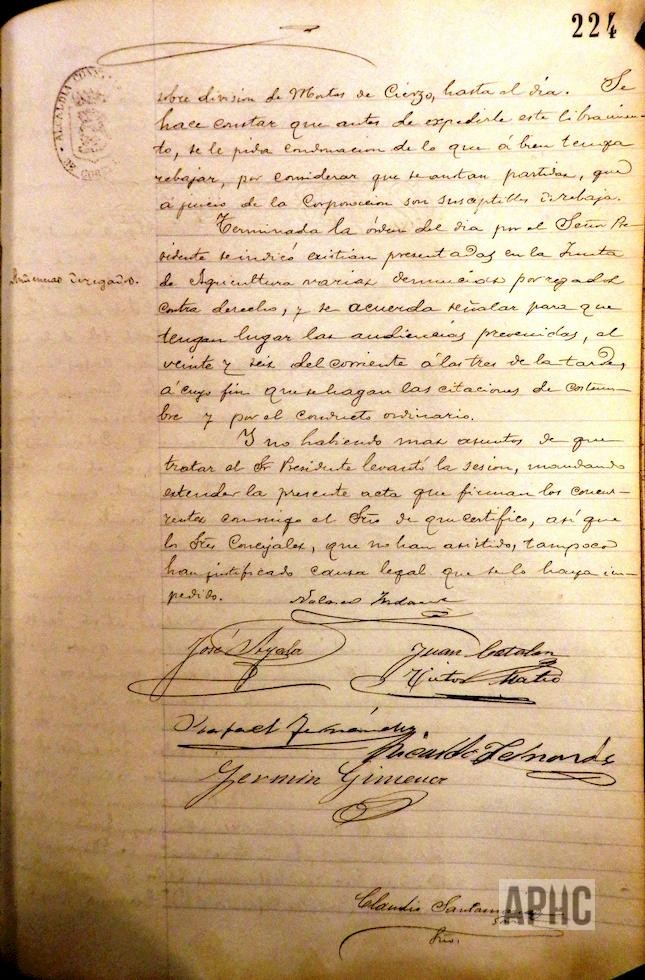 224
ALCALDIA CONS
sobre division de Montes de Cierzo, hasta el dia. Se
hace constar que antes de expedirle este libramien-
to, se le pida condonacion de lo que á bien tenga
rebajar, por considerar que se anotan partidas, que
á juicio de la Corporacion son susceptibles de rebaja.
Terminada la órden del dia por el Señor Pre-
sidente se indicó existian presentadas en la Junta
Denuncias de regados.
de Agricultura varias denuncias por regados
contra derecho, y se acuerda señalar para que
tengan lugar las audiencias prevenidas, el
veinte y seis del corriente á las tres de la tarde,
á cuyo fin que se hagan las citaciones de costum-
bre y por el conducto ordinario.
Y no habiendo mas asuntos de que
tratar el Sr Presidente levantó la sesion, mandando
extender la presente acta que firman los concur-
rentes conmigo el Srio de que certifico, así que
los Sres Concejales, que no han asistido, tampoco
han justificado causa legal que se lo haya im-
pedido.
José Ayala
Juan Catalan
Victor Mateo
Rafael Fernández
Ricardo
Germin Gimenez
Claudio
Srio.
APHC